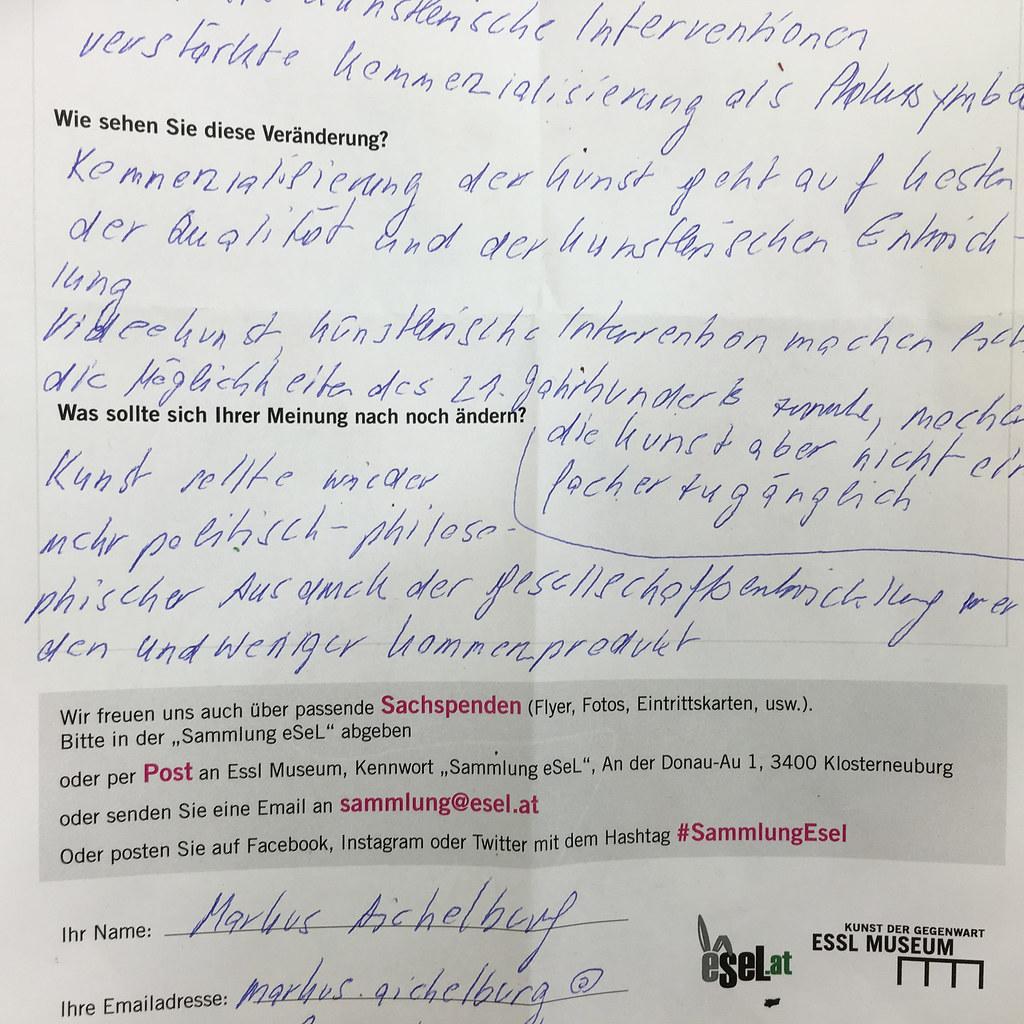 künstlerische Interventionen
verstärkte Kommerzialisierung als
Wie sehen Sie diese Veränderung?
Kommerzialisierung der Kunst geht auf Kosten
der Qualität und der künstlerischen Entwick-
lung
Videokunst, künstlerische Intervention machen sich
die Möglichkeiten des 21. Jahrhunderts zunutze, machen
die Kunst aber nicht ein
facher zugänglich
Was sollte sich Ihrer Meinung nach noch ändern?
Kunst sollte wieder
mehr politisch-philoso-
phischer Ausdruck der Gesellschaftsentwicklung wer
den und weniger Kommerzprodukt
Wir freuen uns auch über passende Sachspenden (Flyer, Fotos, Eintrittskarten, usw.).
Bitte in der „Sammlung eSeL“ abgeben
oder per Post an Essl Museum, Kennwort „Sammlung eSeL“, An der Donau-Au 1, 3400 Klosterneuburg
oder senden Sie eine Email an sammlung@esel.at
Oder posten Sie auf Facebook, Instagram oder Twitter mit dem Hashtag #SammlungEsel
Ihr Name: Markus Aichelburg
eSeL.at
KUNST DER GEGENWART
ESSL MUSEUM
Ihre Emailadresse: markus.aichelburg@